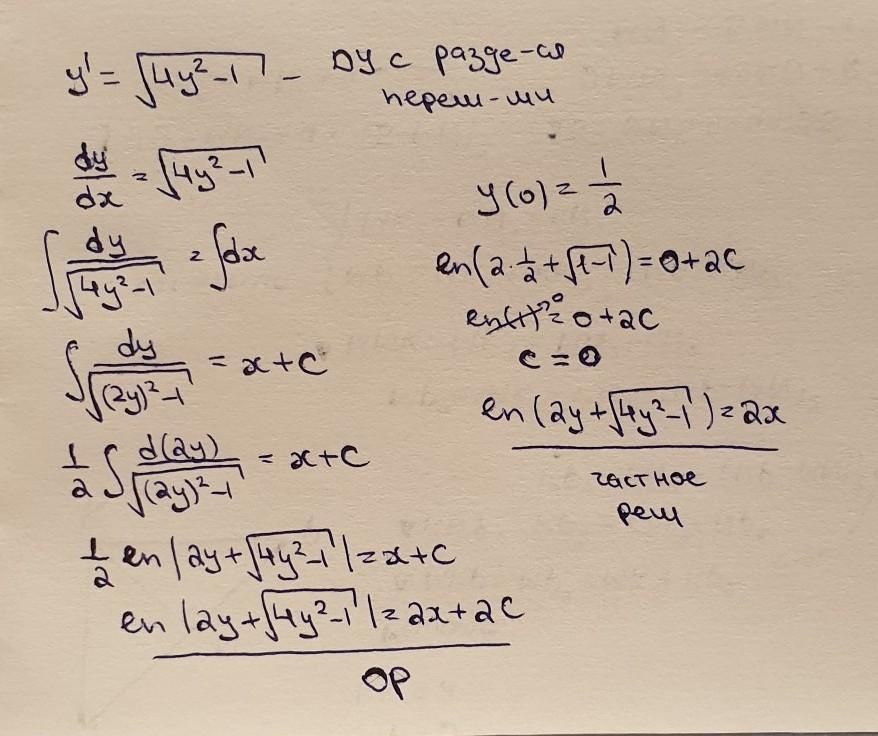 y' = √(4y²-1) - ДУ с разде-ся
перем-ми
dy/dx = √(4y²-1)
∫ dy/√(4y²-1) = ∫dx
∫ dy/√((2y)²-1) = x+C
1/2 ∫ d(2y)/√((2y)²-1) = x+C
1/2 ln|2y+√(4y²-1)|=x+C
ln|2y+√(4y²-1)|=2x+2C
ОР
y(0)=1/2
ln(2·1/2+√(1-1))=0+2C
ln(1)=0+2C
C=0
ln(2y+√(4y²-1))=2x
частное
реш